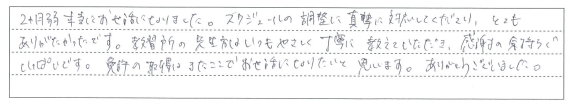 2ヶ月弱 本当にお世話になりました。スケジュールの調整に真摯に対応してくださり、とても
ありがたかったです。教習所の先生方はいつもやさしく丁寧に教えていただき、感謝の気持ちで
いっぱいです。免許の取得はまたここでお世話になりたいと思います。ありがとうございました。